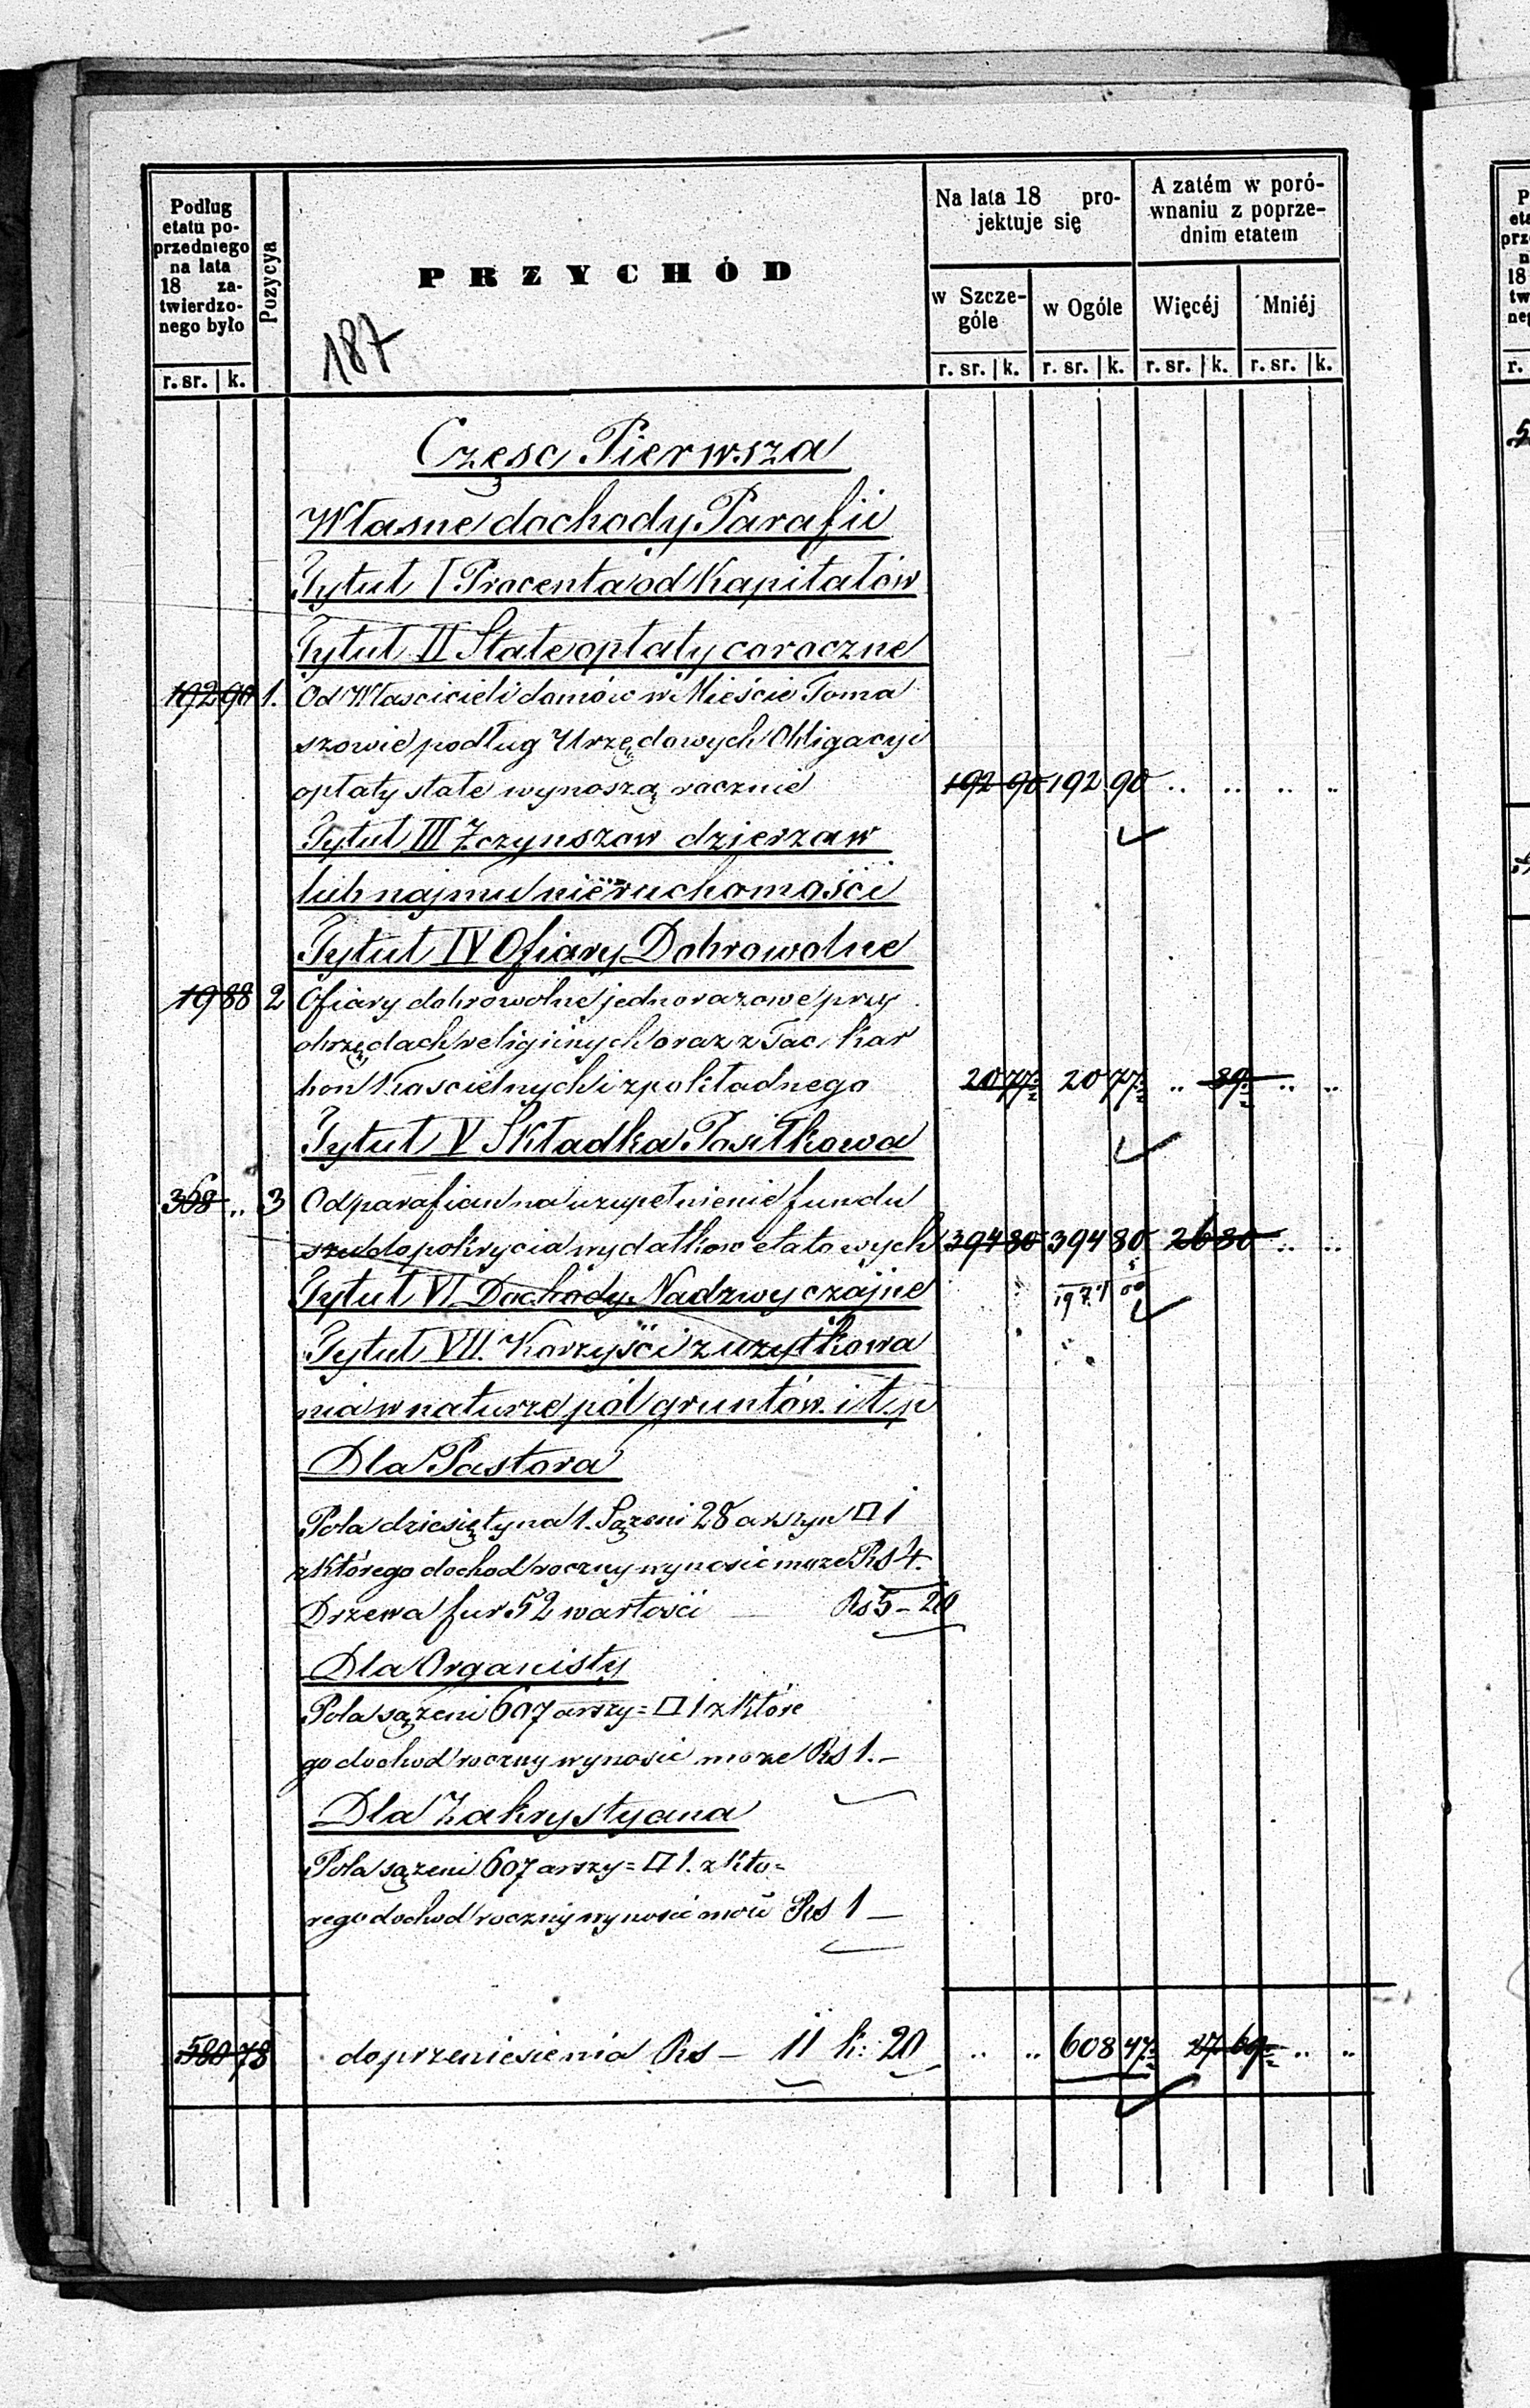 Podług
etatu po-
przedniego
na lata
18 za-
twierdzo-
nego było
r. sr. k.
Pozycya
PRZYCHÓD
187
Na lata 18 pro-
jektuje się
w Szcze-
góle
r. sr. k.
w Ogóle
r. sr. k.
A zatém w poró-
wnaniu z poprze-
dnim etatem
Więcéj
r. sr. k.
Mniéj
r. sr. k.
Część Pierwsza
Własne dochody Parafii
Tytuł I Procenta od Kapitałów
Tytuł II Stałe opłaty coroczne
192 90 1. Od Właścicieli domów w Mieście Toma
szowie podług Urzędowych Obligacyi
opłaty stałe wynoszą rocznie 192 90 192 90 .. .. .. ..
Tytuł III Z czynszow dzierzaw
lub najmu nieruchomości
Tytuł IV Ofiary Dobrowolne
19 88 2 Ofiary dobrowolne jednorazowe przy
obrzędach religijnych oraz z Tac, kar
bon Koscielnych i zpokładnego 20 77 20 77 .. 89 .. ..
Tytuł V Składka Posiłkowa
368 .. 3 Od parafian na uzupełnienie fundu
szu do pokrycia wydatkow etatowych 394 80 394 80 26 80 .. ..
Tytuł VI Dochody Nadzwyczajne
Tytuł VII. Korzyści z uzytkowa
nia w naturze pól gruntów i t. p
Dla Pastora
Pola dziesięty na 1. Sązeni 28 arszyn □ 1
z którego dochod roczny wynosic moze Rs 4.
Drzewa fur 52 wartości — Rs 5 – 20
Dla Organisty
Pola sązeni 607 arszy = □ 1 z które
go dochod roczny wynosic moze Rs 1. –
Dla Zakrystyana
Pola sązeni 607 arszy = □ 1. z kto=
rego dochod roczny wynosić Rs 1 –
580 78 do przeniesienia Rs – 11 k: 20 .. .. 608 47 27 69 .. ..